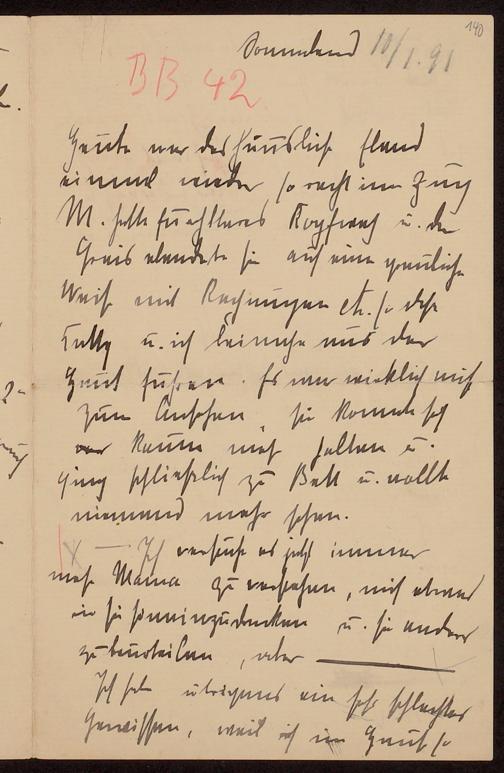 140
Sonnabend 10/1.91
BB 42
Heute war das häusliche Elend
einmal wieder so recht im Zug
M. hatte furchtbares Kopfweh u. der
Greis elendete sie auf eine greuliche
Weise mit Rechnungen etc. so daß
Tutty u. ich beinahe aus der
Haut fuhren. Es war wirklich nicht
zum Ansehen, sie konnte sich
kaum mehr halten u.
ging schließlich zu Bett u. wollte
niemand mehr sehen.
— Ich versuche es jetzt immer
mehr Mama zu verstehen, mich etwas
in sie hineinzudenken u. sie anders
zu beurteilen, aber ———
Ich habe übrigens ein sehr schlechtes
Gewissen, weil ich im Hause so